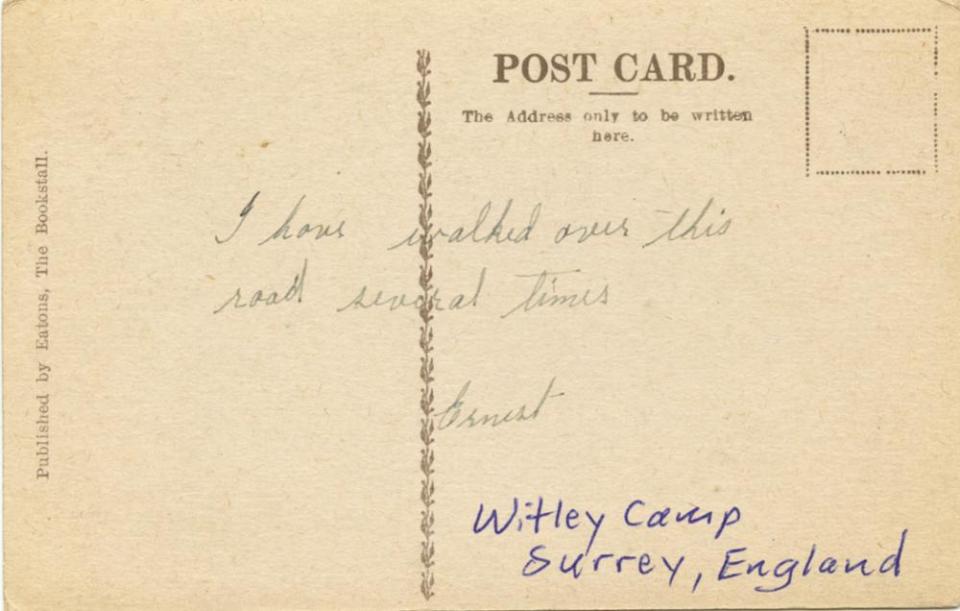 POST CARD.
The Address only to be written
here.
Published by Eatons, The Bookstall.
I have walked over this
road several times
Ernest
Witley Camp
Surrey, England